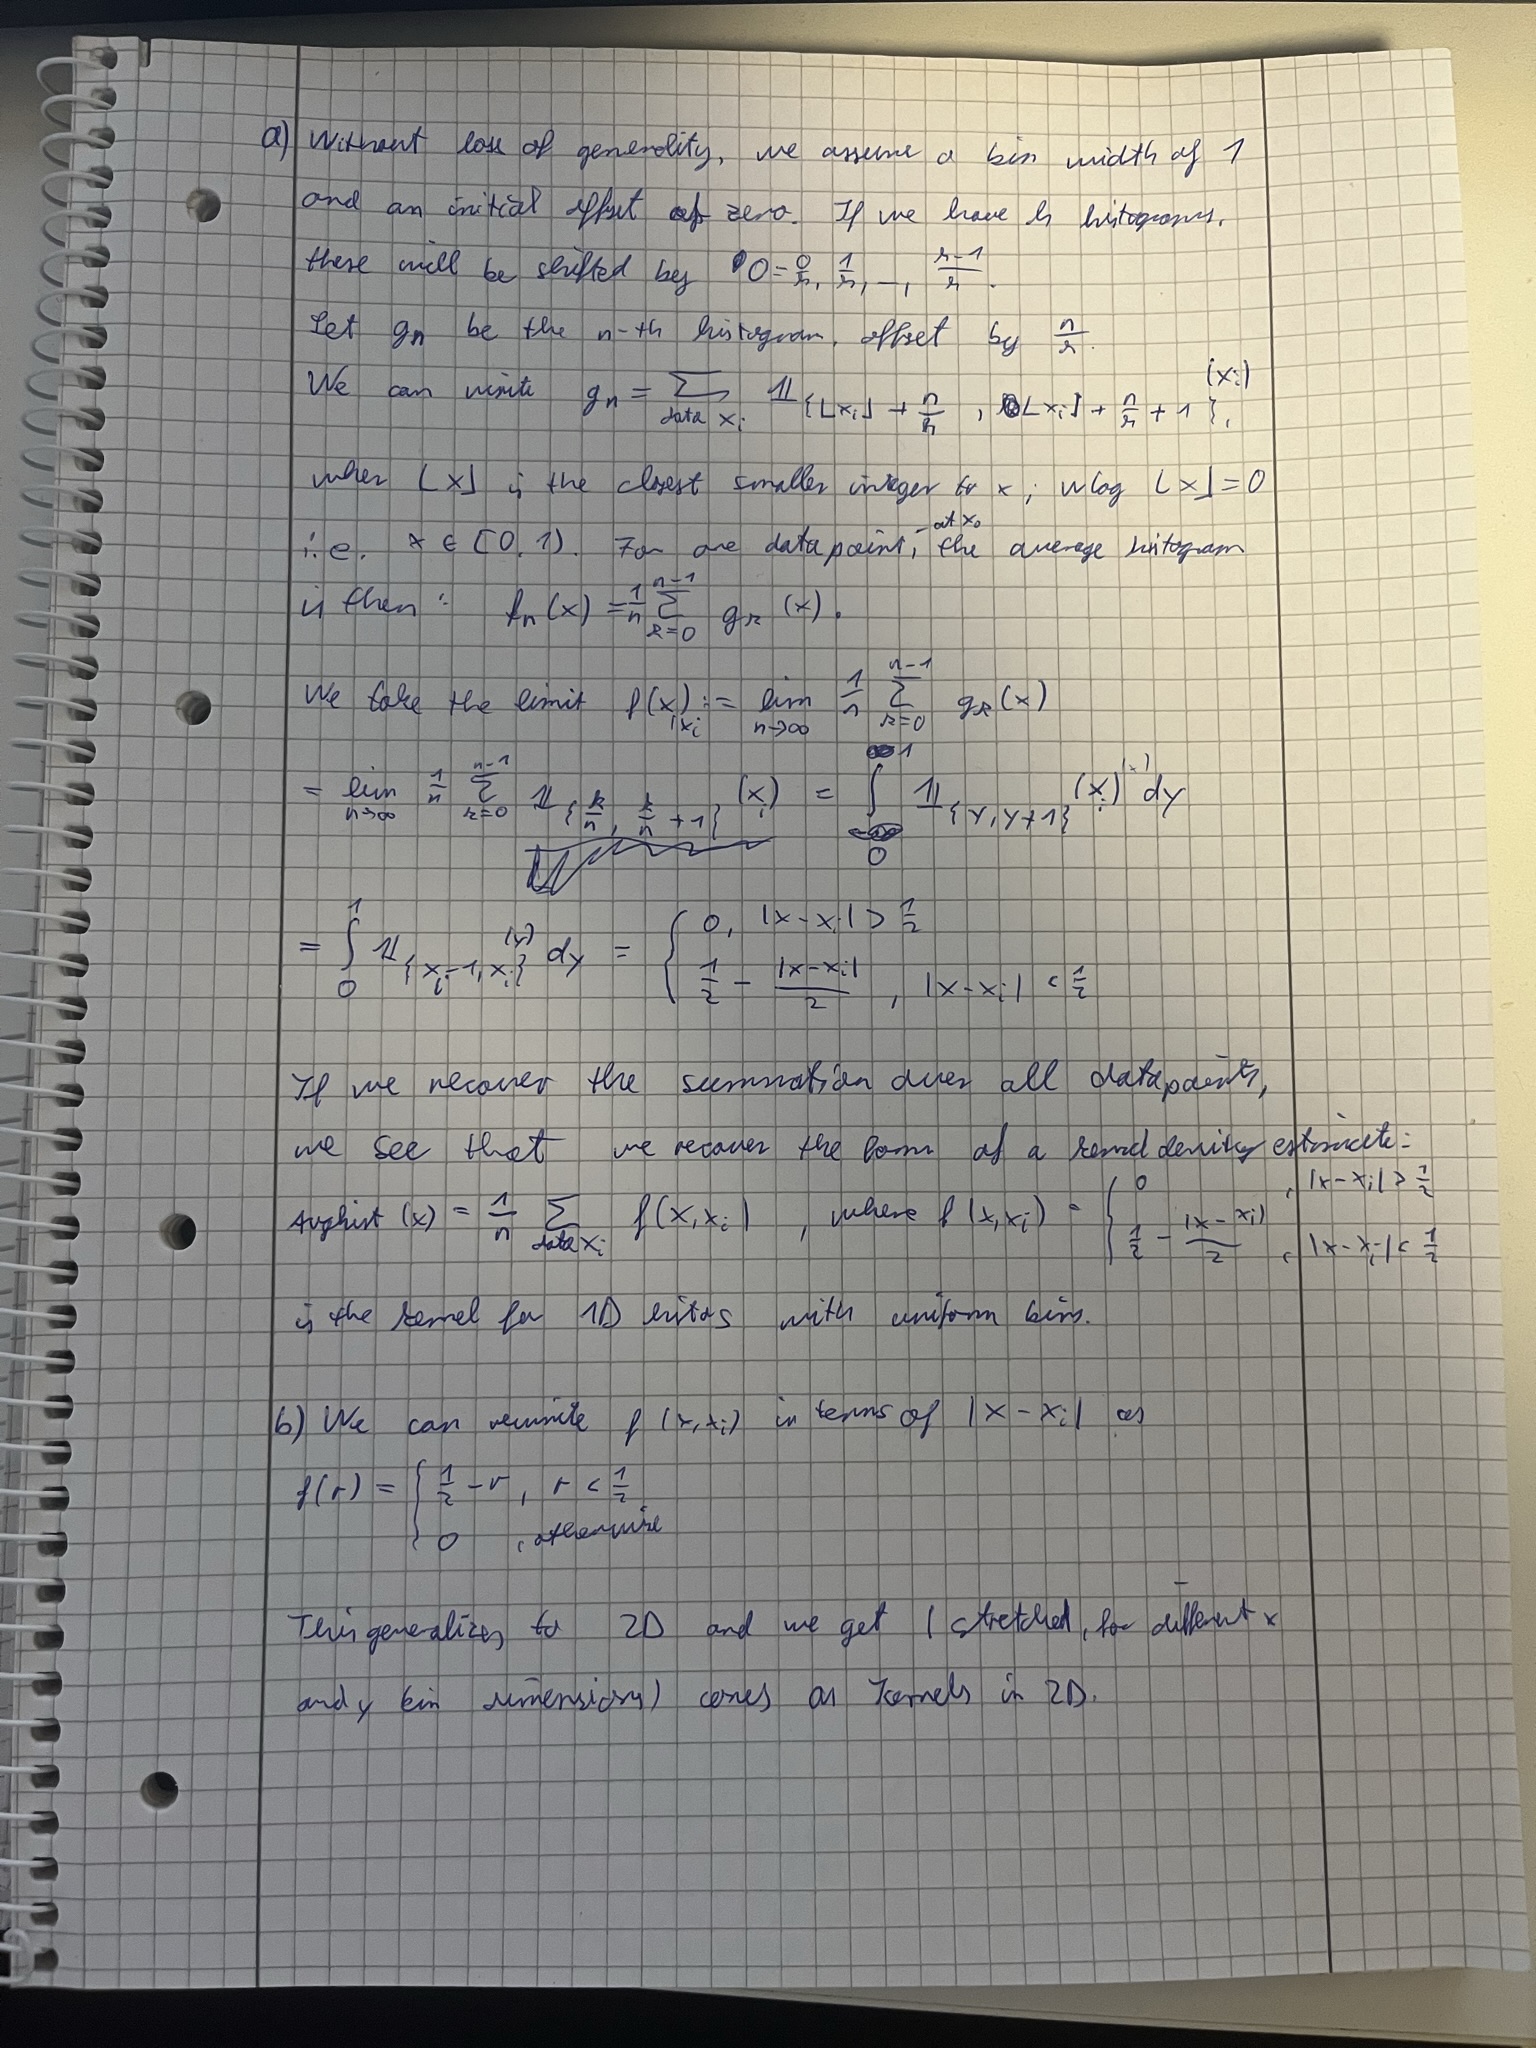 a) Without loss of generality, we assume a bin width of 1
and an initial offset of zero. If we have k histograms,
these will be shifted by 0 = 0/k, 1/k, ..., k-1/k.
Let gn be the n-th histogram, offset by n/k.
We can write gn = Σ_{data xi} 𝟙_{{⌊xi⌋ + n/k, ⌊xi⌋ + n/k + 1}}(xi),
wher ⌊x⌋ is the closest smaller integer to x; wlog ⌊x⌋ = 0
i.e. x ∈ [0,1). For one datapoint, at x0 the average histogram
is then: fn(x) = 1/n Σ_{k=0}^{n-1} gk(x).
We take the limit f(x, xi) := lim_{n→∞} 1/n Σ_{k=0}^{n-1} gk(x)
= lim_{n→∞} 1/n Σ_{k=0}^{n-1} 𝟙_{{k/n, k/n + 1}}(xi) = ∫_0^1 𝟙_{{y, y+1}}(xi) (x) dy
= ∫_0^1 𝟙_{{xi-1, xi}}(y) dy = { 0, |x-xi| > 1/2
1/2 - |x-xi|/2, |x-xi| < 1/2
If we recover the summation over all datapoints,
we see that we recover the form of a kernel density estimate:
Avghist(x) = 1/n Σ_{data xi} f(x, xi), where f(x, xi) = { 0, |x-xi| > 1/2
1/2 - |x-xi|/2, |x-xi| < 1/2
is the kernel for 1D histos with uniform bins.
b) We can rewrite f(x, xi) in terms of |x-xi| as
f(r) = { 1/2 - r, r < 1/2
0, otherwise
This generalizes to 2D and we get (stretched, for different x
and y bin dimensions) cones as kernels in 2D.